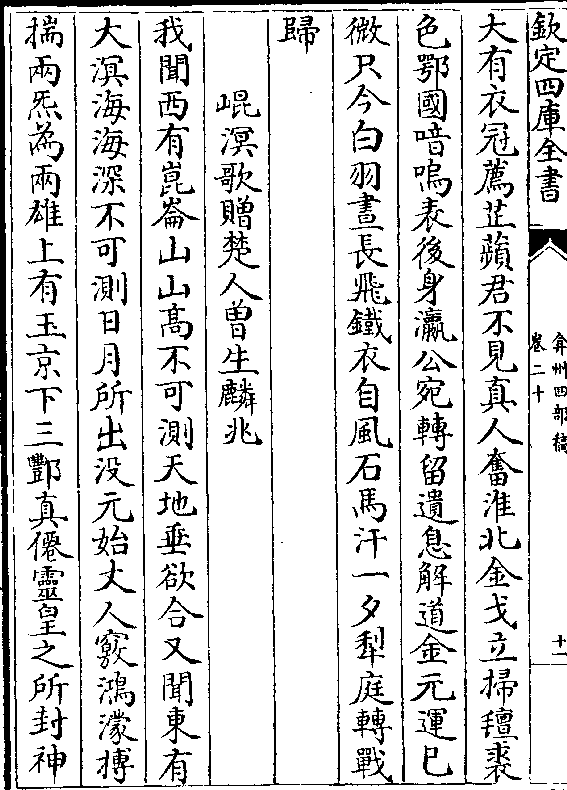 欽定四庫全書
弇州四部稿
卷二十
十一
大有衣冠薦芷蘋君不見真人奮淮北金戈立掃氊裘
色鄂國喑嗚表後身瀛公宛轉留遺息解道金元運已
微只今白羽晝長飛鐵衣自風石馬汗一夕犁庭轉戰
歸
崐溟歌贈楚人曾生麟兆
我聞西有崑崙山山髙不可測天地垂欲合又聞東有
大溟海海深不可測日月所出没元始丈人竅鴻濛摶
揣兩炁為兩雄上有玉京下三酆真僊靈皇之所封神